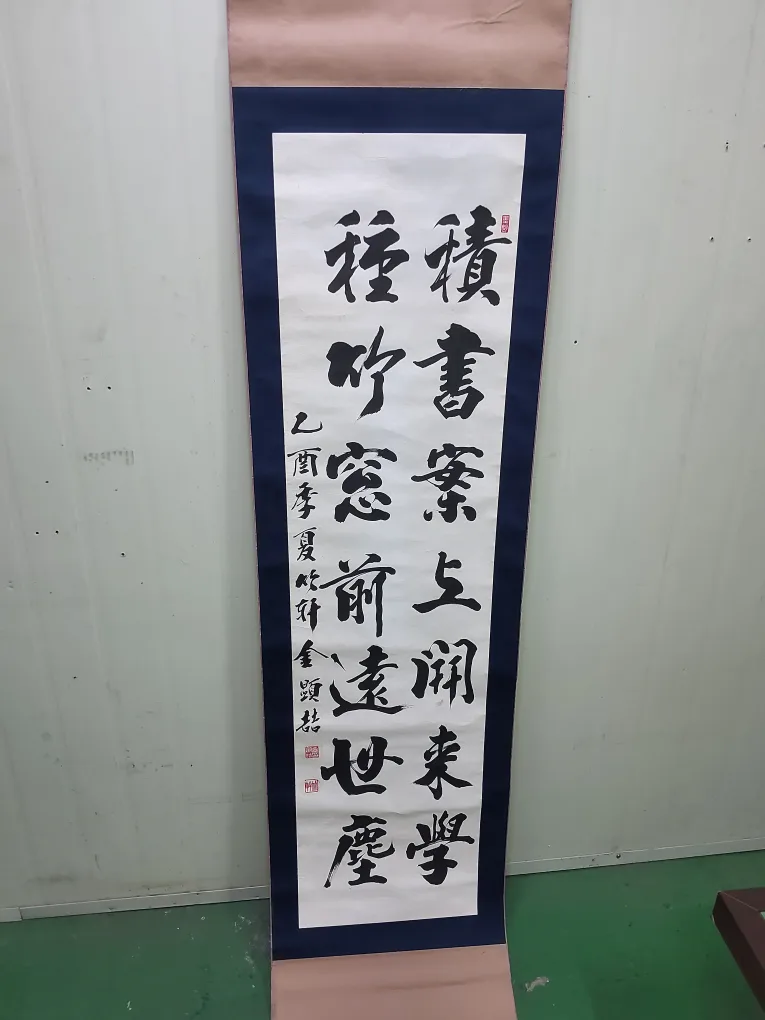 積書案上開来學
種竹窓前遠世塵
乙酉季夏竹軒金顯喆